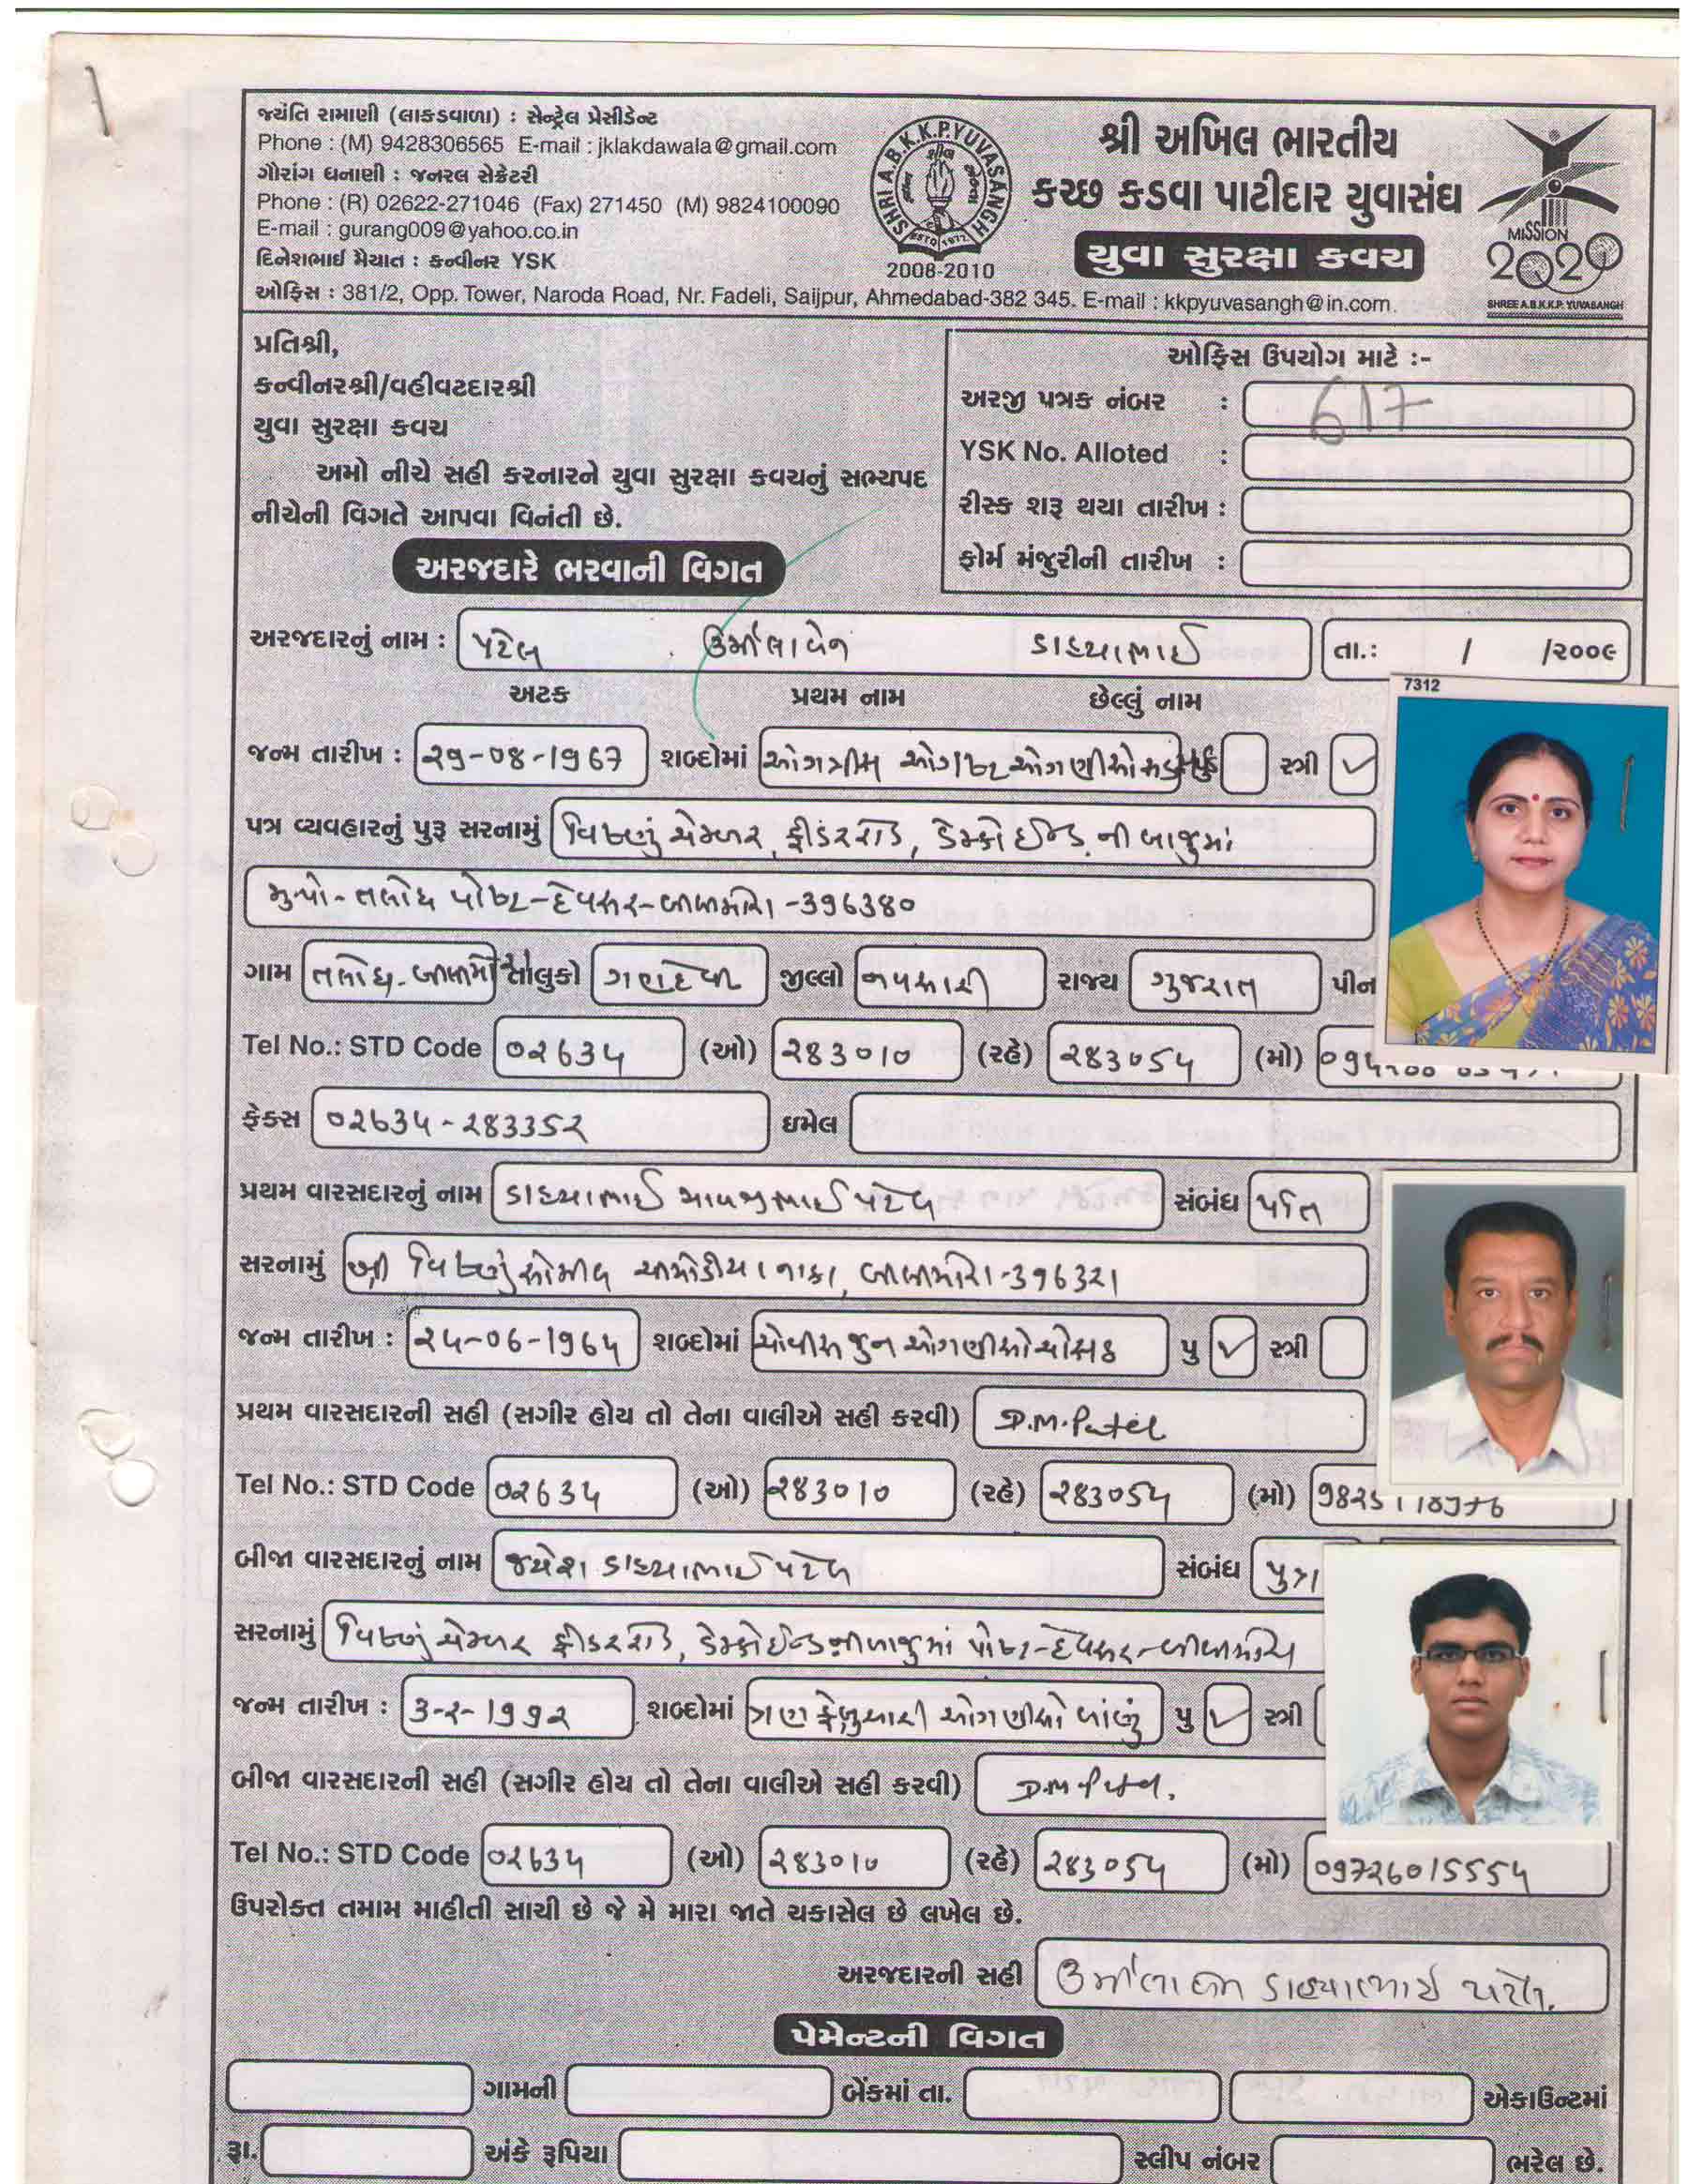 જ્યંતિ રામાણી (લાકડાવાળા) : સેન્ટ્રેલ પ્રેસીડેન્ટ
Phone : (M) 9428306565 E-mail : jklakdawala@gmail.com
ગૌરાંગ ધનાણી : જનરલ સેક્રેટરી
Phone : (R) 02622-271046 (Fax) 271450 (M) 9824100090
E-mail : gurang009@yahoo.co.in
દિનેશભાઈ મૈયાત : કન્વીનર YSK
SHRI A.B.K.K.P.YUVASANGH
ESTD 1972
2008-2010
શ્રી અખિલ ભારતીય
કચ્છ કડવા પાટીદાર યુવાસંઘ
યુવા સુરક્ષા કવચ
MISSION
2020
SHREE A.B.K.K.P. YUVASANGH
ઓફિસ : 381/2, Opp. Tower, Naroda Road, Nr. Fadeli, Saijpur, Ahmedabad-382 345. E-mail : kkpyuvasangh@in.com
પ્રતિશ્રી,
કન્વીનરશ્રી/વહીવટદારશ્રી
યુવા સુરક્ષા કવચ
અમો નીચે સહી કરનારને યુવા સુરક્ષા કવચનું સભ્યપદ
નીચેની વિગતે આપવા વિનંતી છે.
ઓફિસ ઉપયોગ માટે :-
અરજી પત્રક નંબર : 617
YSK No. Alloted :
રીસ્ક શરૂ થયા તારીખ :
ફોર્મ મંજુરીની તારીખ :
અરજદારે ભરવાની વિગત
અરજદારનું નામ : પટેલ ઉર્મીલાબેન ડાહ્યાભાઈ તા.: / /૨૦૦૯
અટક પ્રથમ નામ છેલ્લું નામ
7312
જન્મ તારીખ : ૨9-૦8-1967 શબ્દોમાં સ્ત્રી ✓
પત્ર વ્યવહારનું પુરૂ સરનામું વિષ્ણું ચેમ્બર, ફીડરરોડ, ડેમ્કો ઈન્ડ.ની બાજુમાં
મુ.પો- તલોધ પોષ્ટ-દેવસર-બીલીમોરા-396380
ગામ તલોધ-બીલીમોરા તાલુકો ગણદેવી જીલ્લો નવસારી રાજ્ય ગુજરાત પીન
Tel No.: STD Code ૦૨634 (ઓ) ૨83૦1૦ (રહે) ૨83૦54 (મો)
ફેક્સ ૦૨634-૨8335૨ ઇમેલ
પ્રથમ વારસદારનું નામ ડાહ્યાભાઈ માવજીભાઈ પટેલ સંબંધ પતિ
સરનામું શ્રી વિષ્ણું સોમીલ નાકા, બીલીમોરા-3963૨1
જન્મ તારીખ : ૨4-૦6-1964 શબ્દોમાં ચોવીસ જુન ઓગણીસો ચોસઠ પુ ✓ સ્ત્રી
પ્રથમ વારસદારની સહી (સગીર હોય તો તેના વાલીએ સહી કરવી) D.M.Patel
Tel No.: STD Code ૦૨634 (ઓ) ૨83૦1૦ (રહે) ૨83૦54 (મો)
બીજા વારસદારનું નામ જયેશ ડાહ્યાભાઈ પટેલ સંબંધ પુત્ર
સરનામું વિષ્ણું ચેમ્બર ફીડરરોડ, ડેમ્કો ઈન્ડ.ની બાજુમાં પોષ્ટ-દેવસર-બીલીમોરા
જન્મ તારીખ : 3-૨-199૨ શબ્દોમાં ત્રણ ફેબ્રુઆરી ઓગણીસો બાંણું પુ ✓ સ્ત્રી
બીજા વારસદારની સહી (સગીર હોય તો તેના વાલીએ સહી કરવી) D.M.Patel.
Tel No.: STD Code ૦૨634 (ઓ) ૨83૦1૦ (રહે) ૨83૦54 (મો) ૦97૨6૦15554
ઉપરોક્ત તમામ માહીતી સાચી છે જે મે મારા જાતે ચકાસેલ છે લખેલ છે.
અરજદારની સહી ઉર્મીલાબેન ડાહ્યાભાઈ પટેલ.
પેમેન્ટની વિગત
ગામની બેંકમાં તા. એકાઉન્ટમાં
રૂા. અંકે રૂપિયા સ્લીપ નંબર ભરેલ છે.